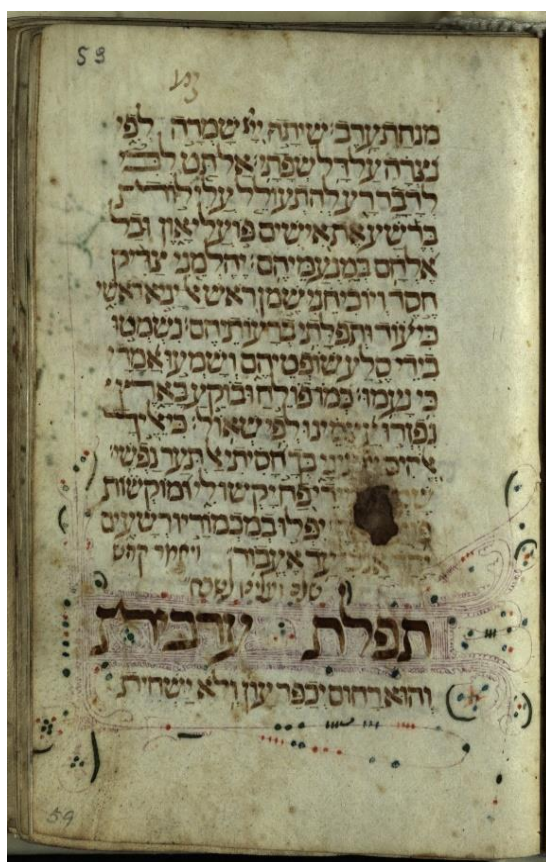 59
מנחת ערב: שיתה ייי שמרה לפי
נצרה על דל שפתי: אל תט לבי
לדבר רע להתעולל עלילות
ברשע את אישים פועלי און ובל
אלחם במנעמיהם: יהלמני צדיק
חסד ויוכיחני שמן ראש אל יניא ראשי
כי עוד ותפלתי ברעותיהם: נשמטו
בידי סלע שופטיהם ושמעו אמרי
כי נעמו: כמו פולח ובוקע בארץ
נפזרו עצמינו לפי שאול: כי אליך
עיני בכה חסיתי אל תער נפשי:
פח יקשו לי ומוקשות
יפלו במכמוריו רשעים
אנכי עד אעבור:
תפלת ערבית
והוא רחום יכפר עון ולא ישחית
59